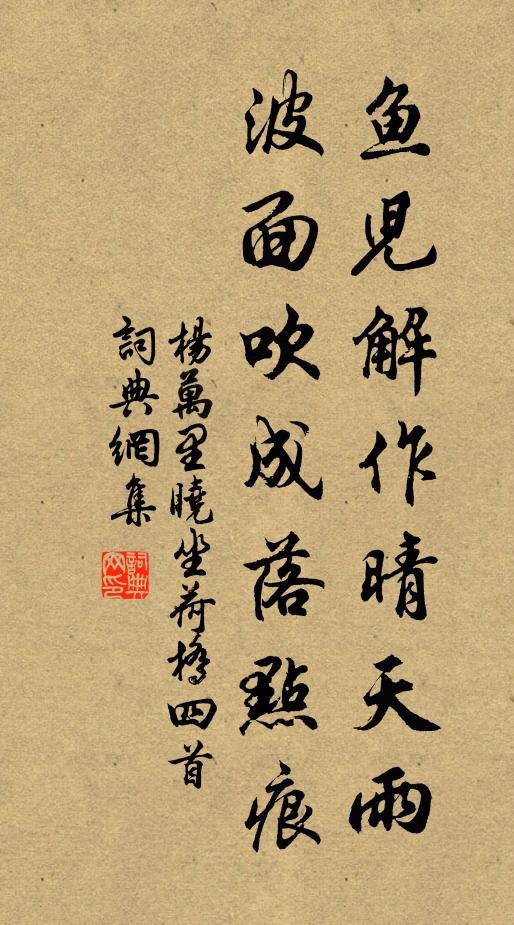 鱼児解作晴天雨
波面吹成落點痕
楊萬里曉坐荷橋四首
詞典網集
詞典
网印